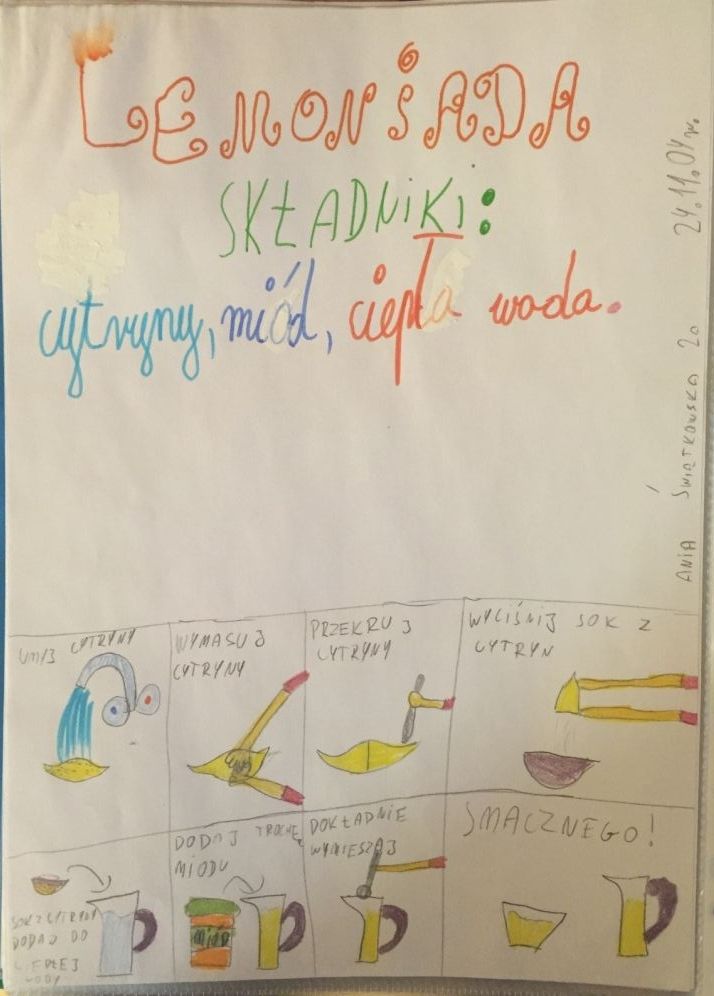 LEMONiADA
SKŁADNiKi:
cytryny, miód, ciepła woda.
24.11.04r.
ANIA ŚWIĄTKOWSKA 2a
UMYJ CYTRYNY
WYMASUJ
CYTRYNY
PRZEKRUJ
CYTRYNY
WYCIŚNIJ SOK Z
CYTRYN
SOK Z CYTRYNY
DODAJ DO
CIEPŁEJ
WODY
DODAJ TROCHĘ
MIODU
MIÓD
DOKŁADNIE
WYMIESZAJ
SMACZNEGO!